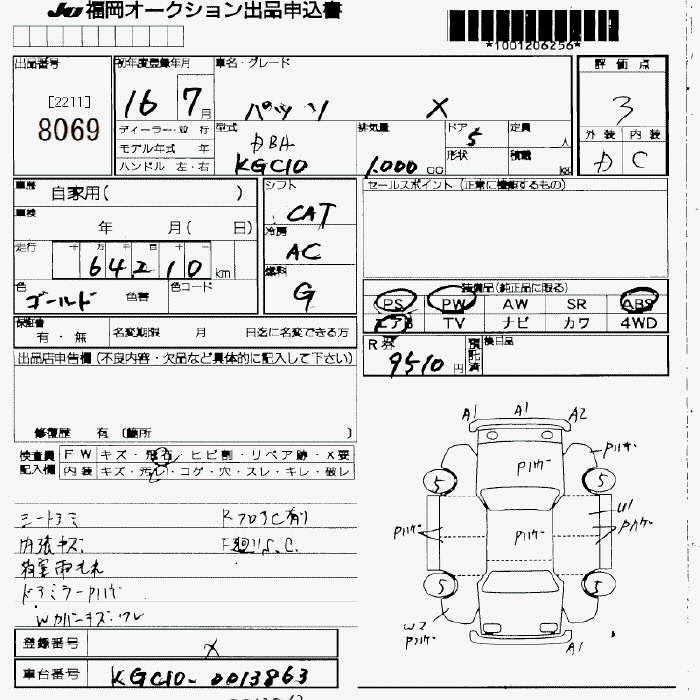 JU 福岡オークション出品申込書
*1001206256*
出品番号
[2211]
8069
初年度登録年月
16 7月
車名・グレード
パッソ X
評価点
3
外装 内装
D C
ディーラー・並行
モデル年式 年
ハンドル 左・右
型式
DBA
KGC10
排気量
1.000 CC
ドア
5
形状
定員
人
積載
kg
車歴
自家用( )
車検
年 月( 日)
走行
十 万 千 百 十
64210 km
色
ゴールド
色替
色コード
シフト
CAT
冷房
AC
燃料
G
セールスポイント (正常に機能するもの)
装備品(純正品に限る)
PS PW AW SR ABS
エアB TV ナビ カワ 4WD
保証書
有・無
名変期限 月 日迄に名変できる方
R券
9510 円
預託済
後日品
出品店申告欄 (不良内容・欠品など具体的に記入して下さい)
修復歴 有 (箇所 )
検査員
記入欄
FW キズ・飛石・ヒビ割・リペア跡・X要
内装 キズ・汚れ・コゲ・穴・スレ・キレ・破レ
シートヨゴミ
内張キズ
Rフロア C有り
F廻り S.C.
ドアミラーPハゲ
Wカバーキズ・ワレ
A1
A1
A2
Pハゲ
Pハゲ
5
5
Pハゲ
Pハゲ
U1
Pハゲ
5
5
W2
Pハゲ
A1
登録番号
X
車台番号
KGC10-0013863